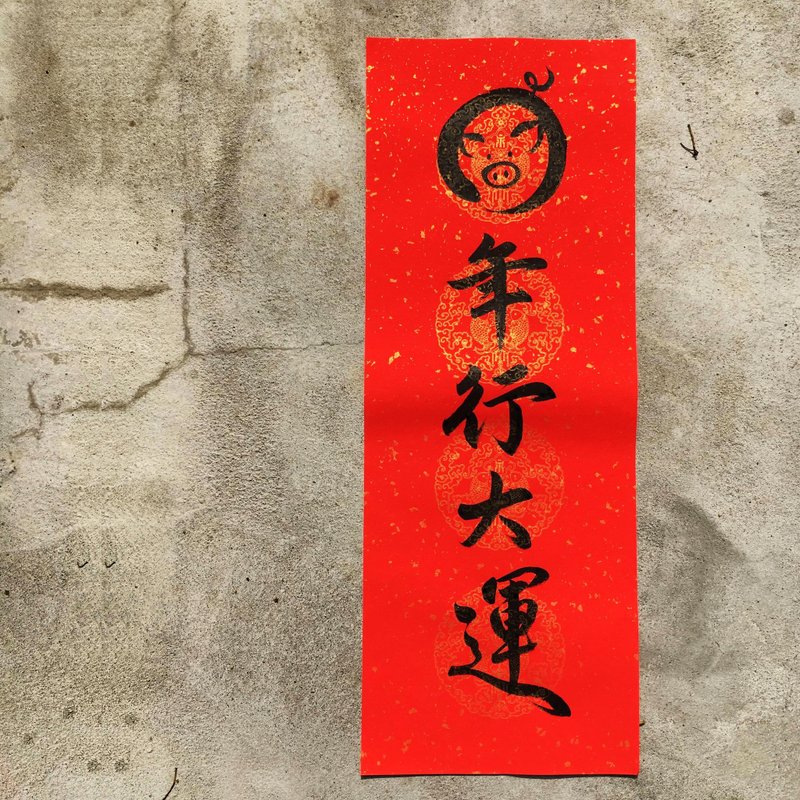 年行大運